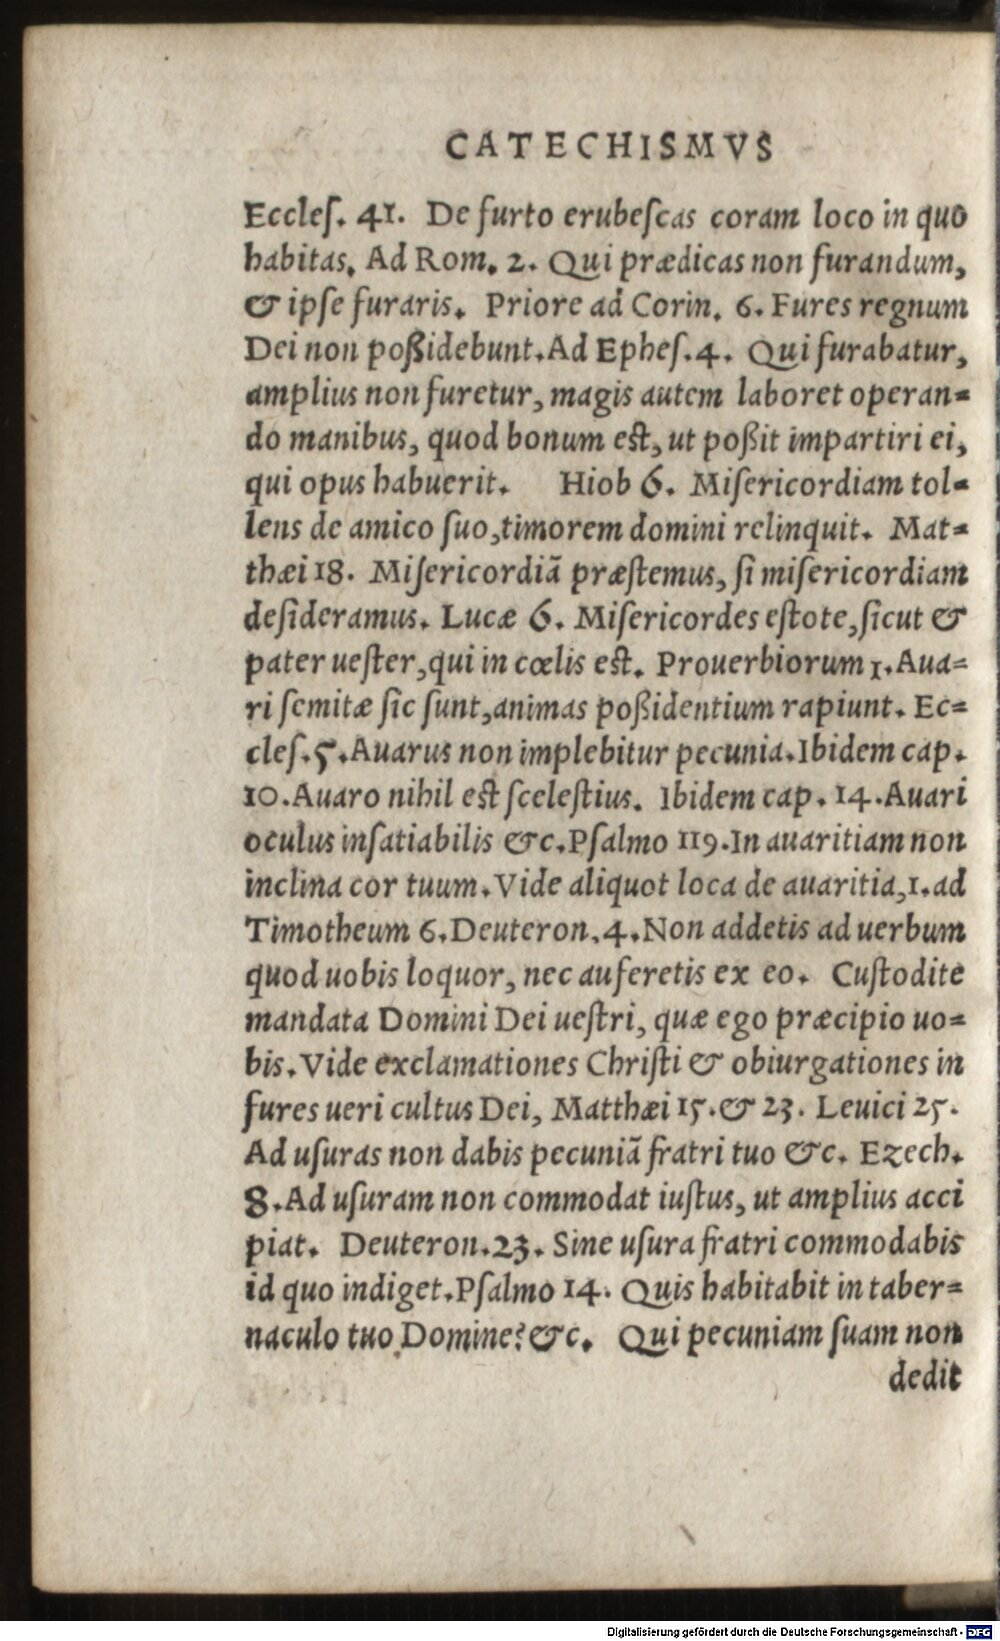 CATECHISMVS
Eccleſ. 41. De furto erubeſcas coram loco in quo
habitas. Ad Rom. 2. Qui prædicas non furandum,
& ipſe furaris. Priore ad Corin. 6. Fures regnum
Dei non poßidebunt. Ad Epheſ. 4. Qui furabatur,
amplius non furetur, magis autem laboret operan=
do manibus, quod bonum est, ut poßit impartiri ei,
qui opus habuerit. Hiob 6. Miſericordiam tol=
lens de amico ſuo, timorem domini relinquit. Mat=
thæi 18. Miſericordiã præſtemus, ſi miſericordiam
deſideramus. Lucæ 6. Miſericordes eſtote, ſicut &
pater ueſter, qui in cœlis est. Prouerbiorum 1. Aua=
ri ſemitæ ſic ſunt, animas poßidentium rapiunt. Ec=
cleſ. 5. Auarus non implebitur pecunia. Ibidem cap.
10. Auaro nihil est ſceleſtius. Ibidem cap. 14. Auari
oculus inſatiabilis &c. Pſalmo 119. In auaritiam non
inclina cor tuum. Vide aliquot loca de auaritia, 1. ad
Timotheum 6. Deuteron. 4. Non addetis ad uerbum
quod uobis loquor, nec auferetis ex eo. Cuſtodite
mandata Domini Dei ueſtri, quæ ego præcipio uo=
bis. Vide exclamationes Chriſti & obiurgationes in
fures ueri cultus Dei, Matthæi 15. & 23. Leuici 25.
Ad uſuras non dabis pecuniã fratri tuo &c. Ezech.
8. Ad uſuram non commodat iuſtus, ut amplius acci
piat. Deuteron. 23. Sine uſura fratri commodabis
id quo indiget. Pſalmo 14. Quis habitabit in taber=
naculo tuo Domine? &c. Qui pecuniam ſuam non
dedit
Digitalisierung gefördert durch die Deutsche Forschungsgemeinschaft - DFG